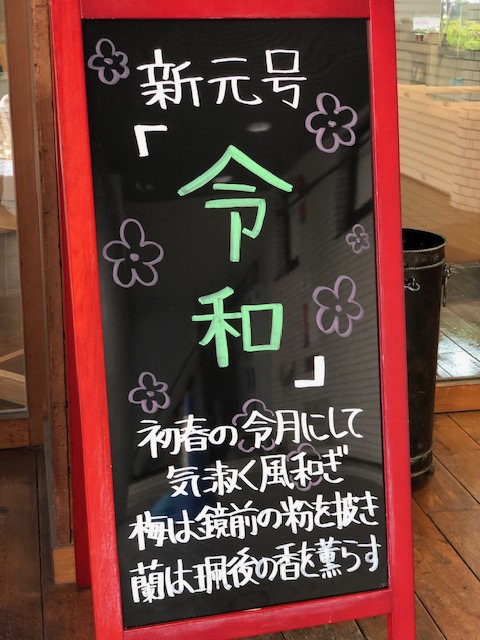 新元号
「令和」
初春の令月にして
気淑く風和ぎ
梅は鏡前の粉を披き
蘭は珮後の香を薫らす